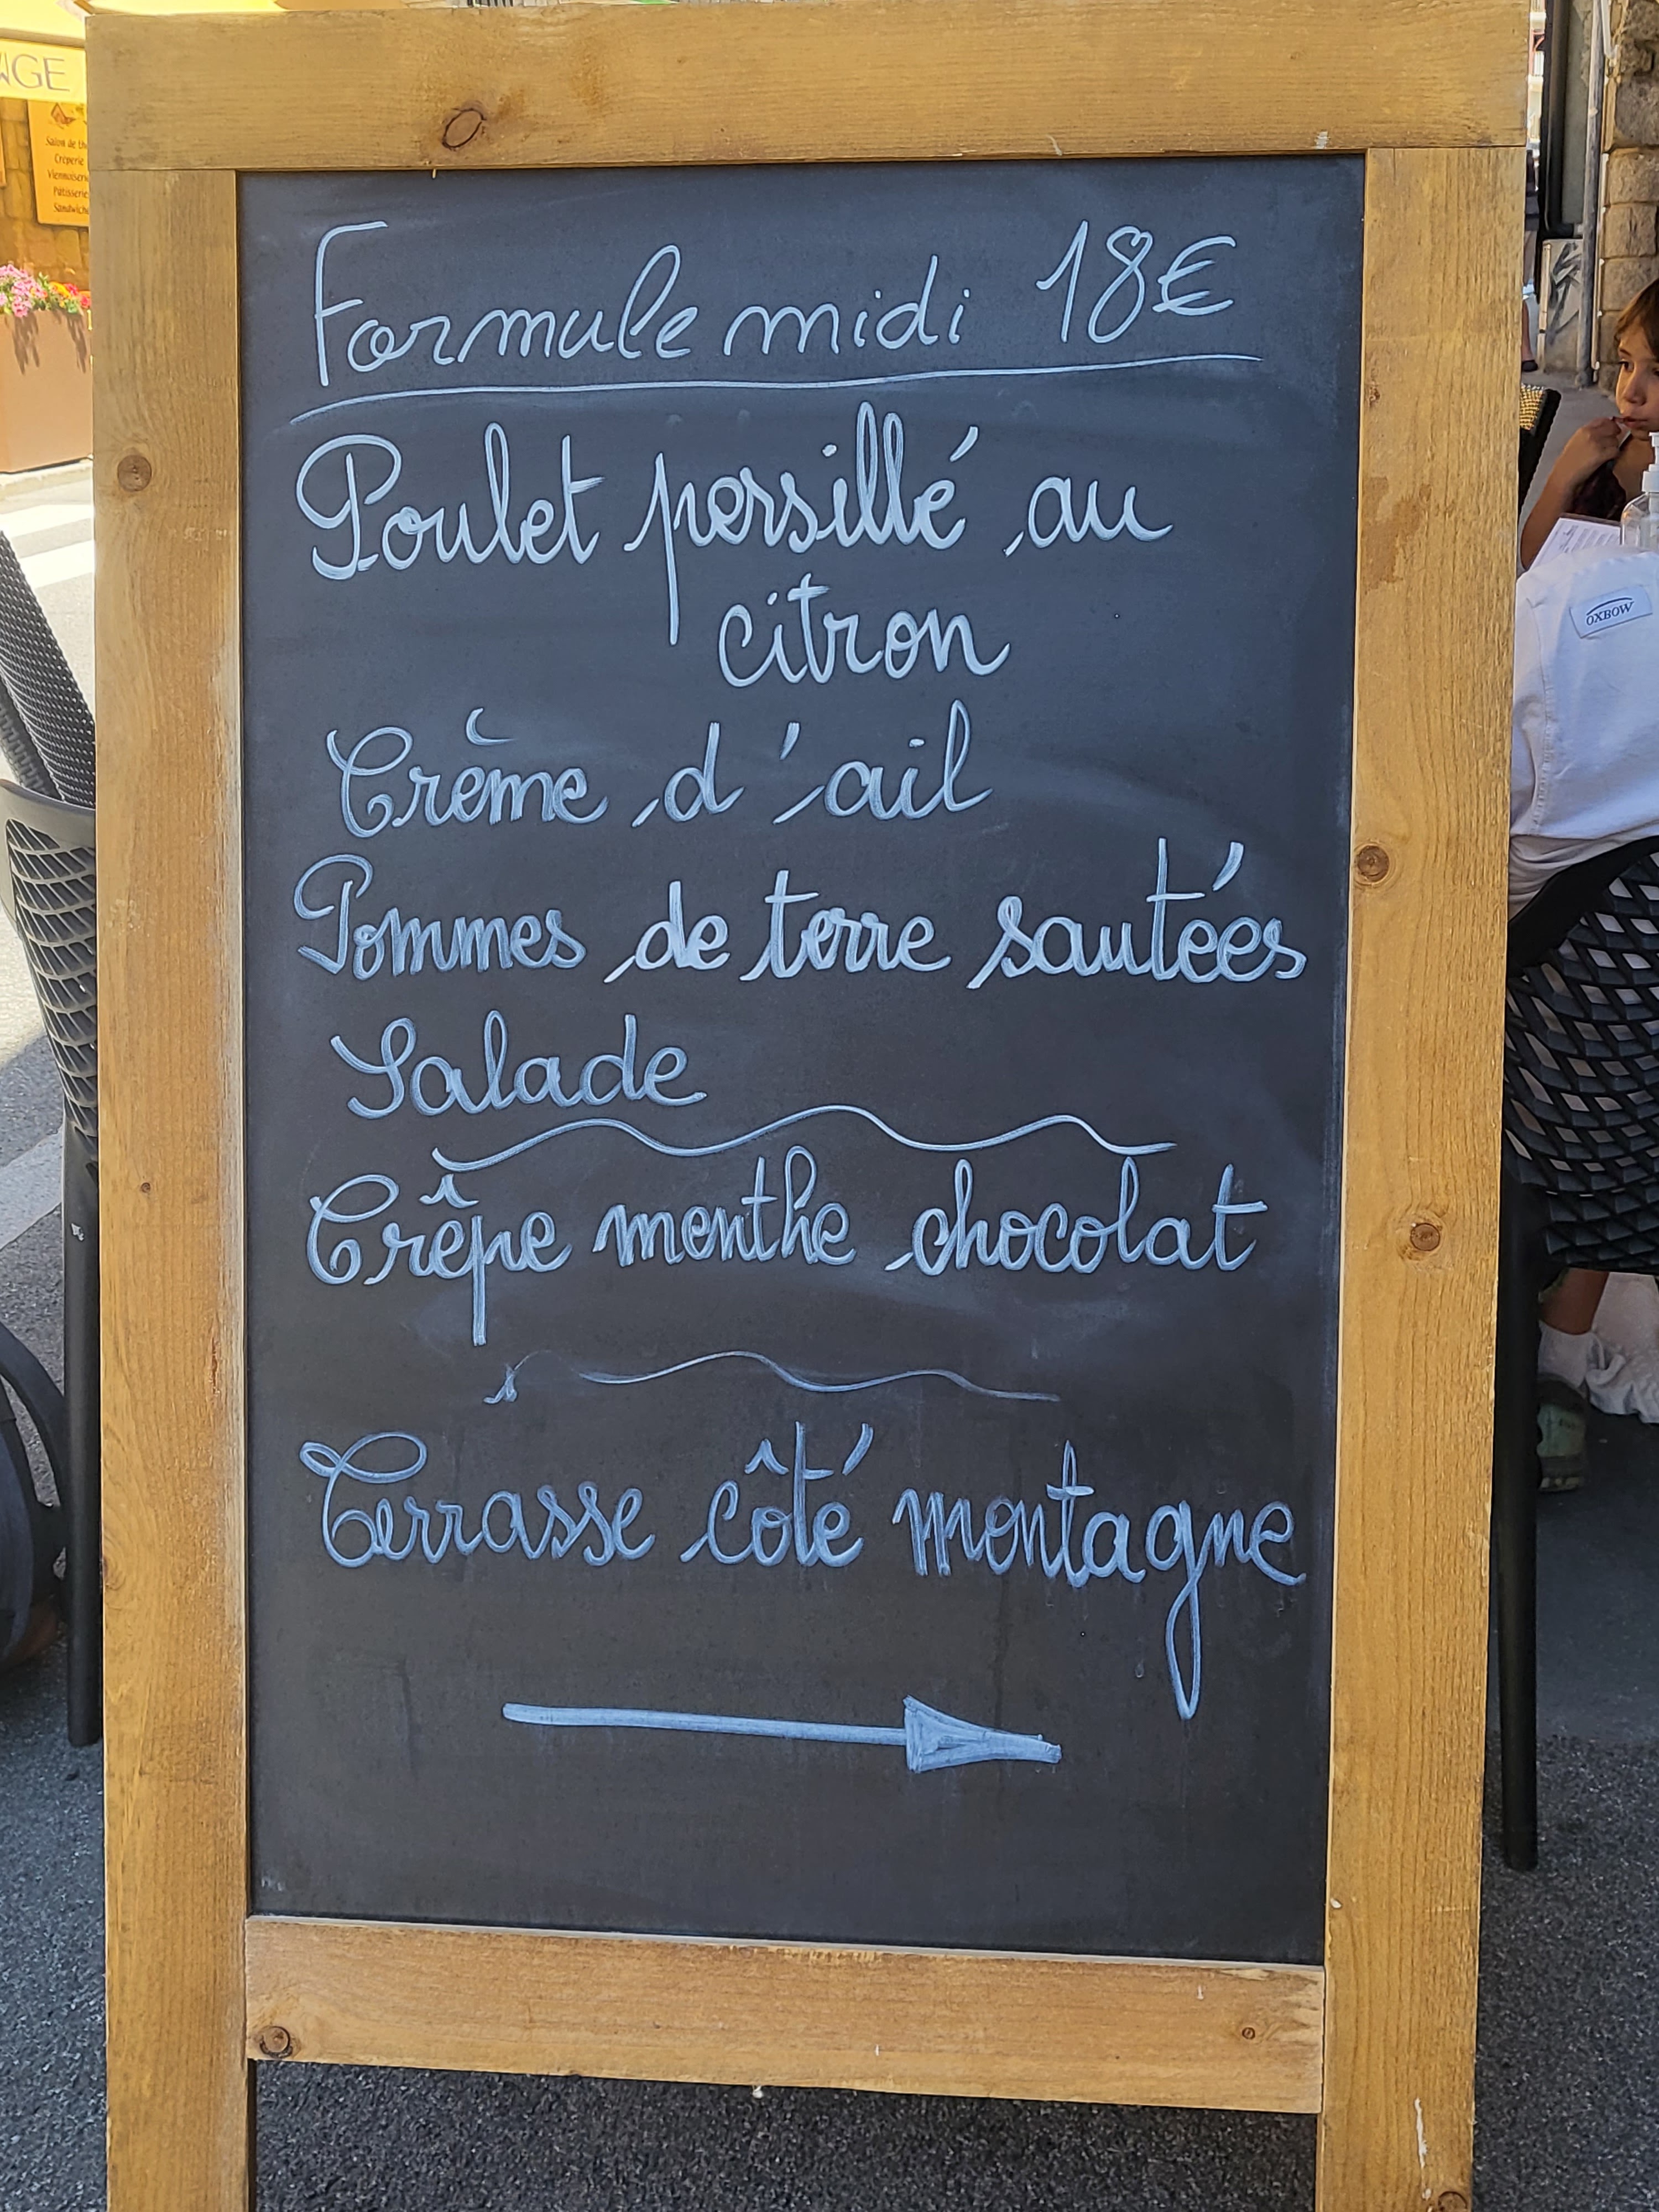 NGE
Salon de
Crêperie
Viennoiserie
Pâtisserie
Sandwich
Formule midi 18€
Poulet persillé au
citron
Crème d'ail
Pommes de terre sautées
Salade
Crêpe menthe chocolat
Terrasse côté montagne
OXBOW